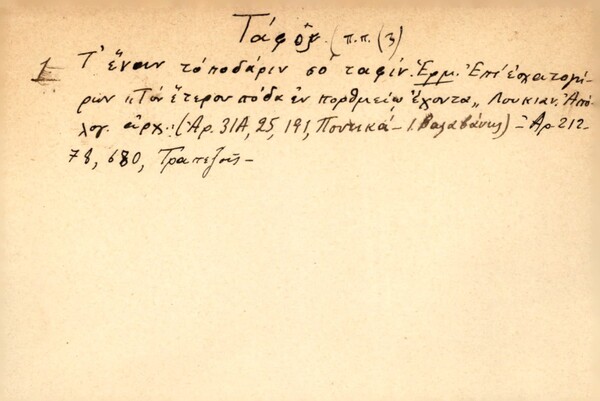 Τάφος (π.π. (3)
1 Τ' ἕναν τὸ ποδάριν σὸ ταφίν. Ἑρμ. Ἐπὶ ἐσχατογή-
ρων "Τὸν ἕτερον πόδα ἐν πορθμείῳ ἔχοντα„ Λουκιαν. Ἀπό-
λογ. ἀρχ. (Ἀρ. 31Α, 25, 191, Ποντικά - Ι. Βαλαβάνης) - Ἀρ. 212-
78, 680, Τραπεζοῦς -